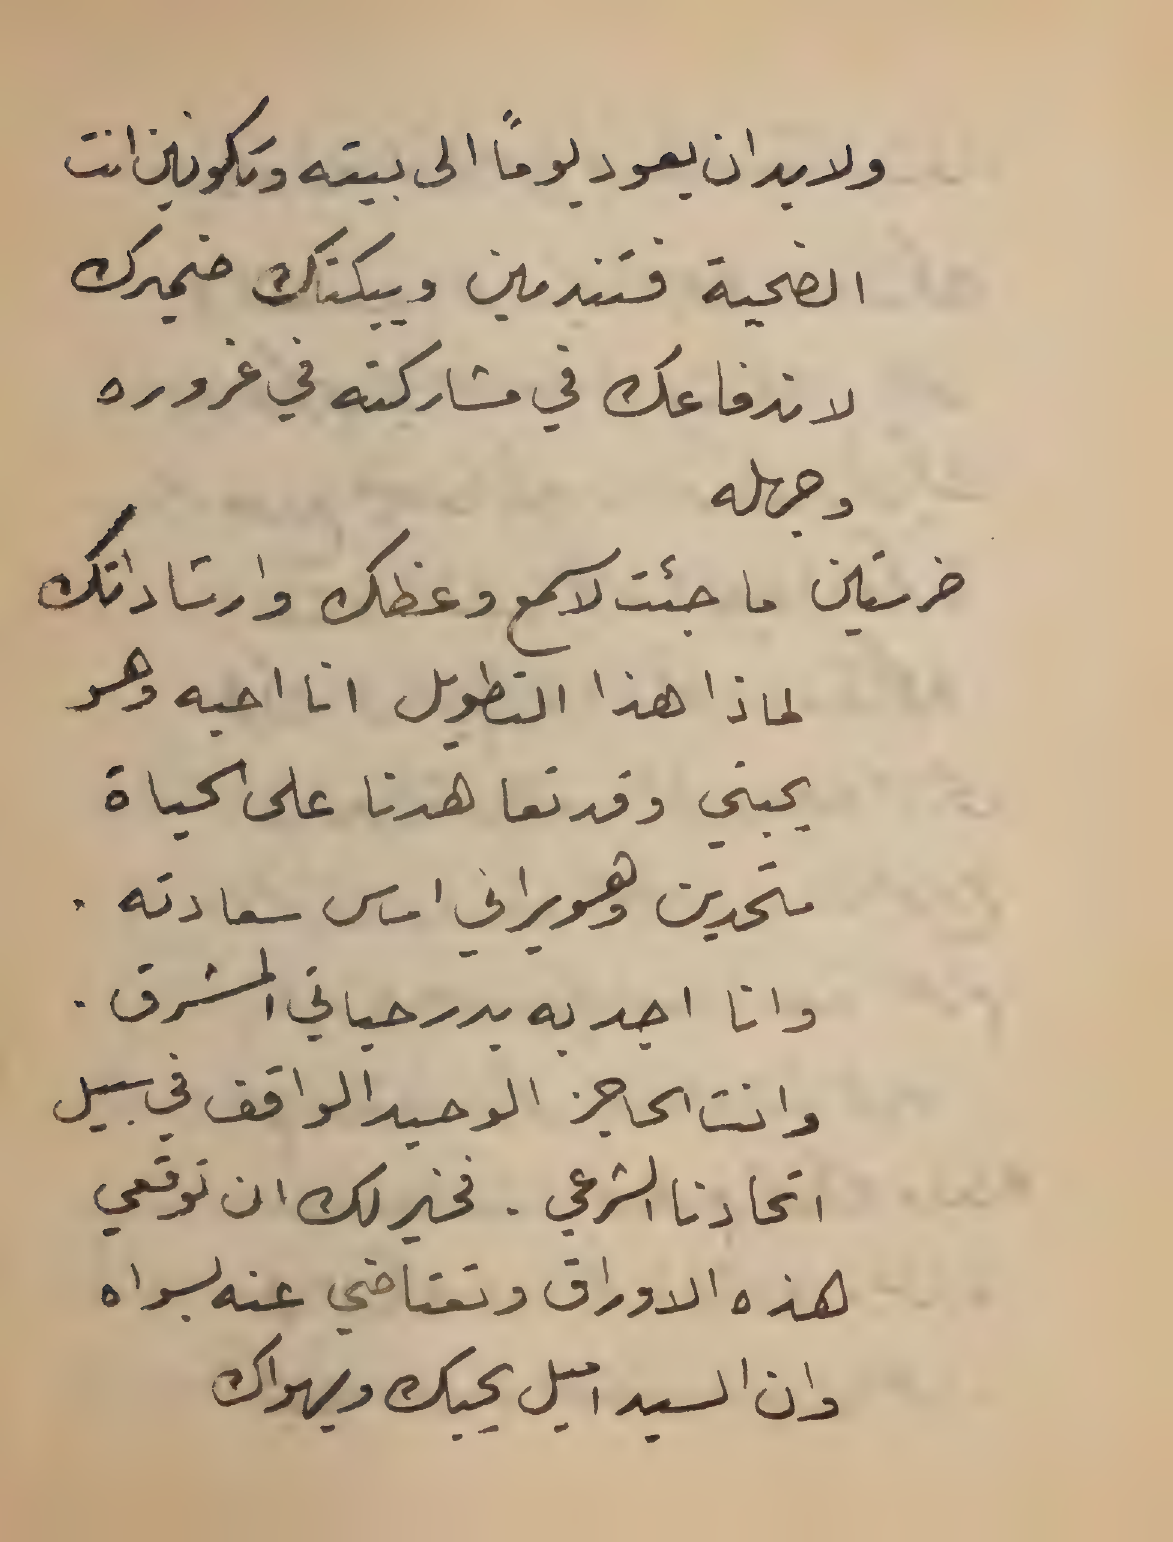 ولا بد ان يعود يوماً الى بيته وتكونين انت
الضحية فتندمين ويبكتك ضميرك
لاندفاعك في مشاركته في غروره
وجهله
خرستين ما جئت لاسمع وعظك وارشاداتك
لماذا هذا التطويل انا احبه وهو
يحبني وقد تعاهدنا على الحياة
متحدين وهو يراني اساس سعادته .
وانا اجد به بدر حياتي المشرق .
وانت الحاجز الوحيد الواقف في سبيل
اتحادنا الشرعي . فخير لك ان توقعي
هذه الاوراق وتعتاضي عنه بسواه
وان السيد اميل يحبك ويهواك